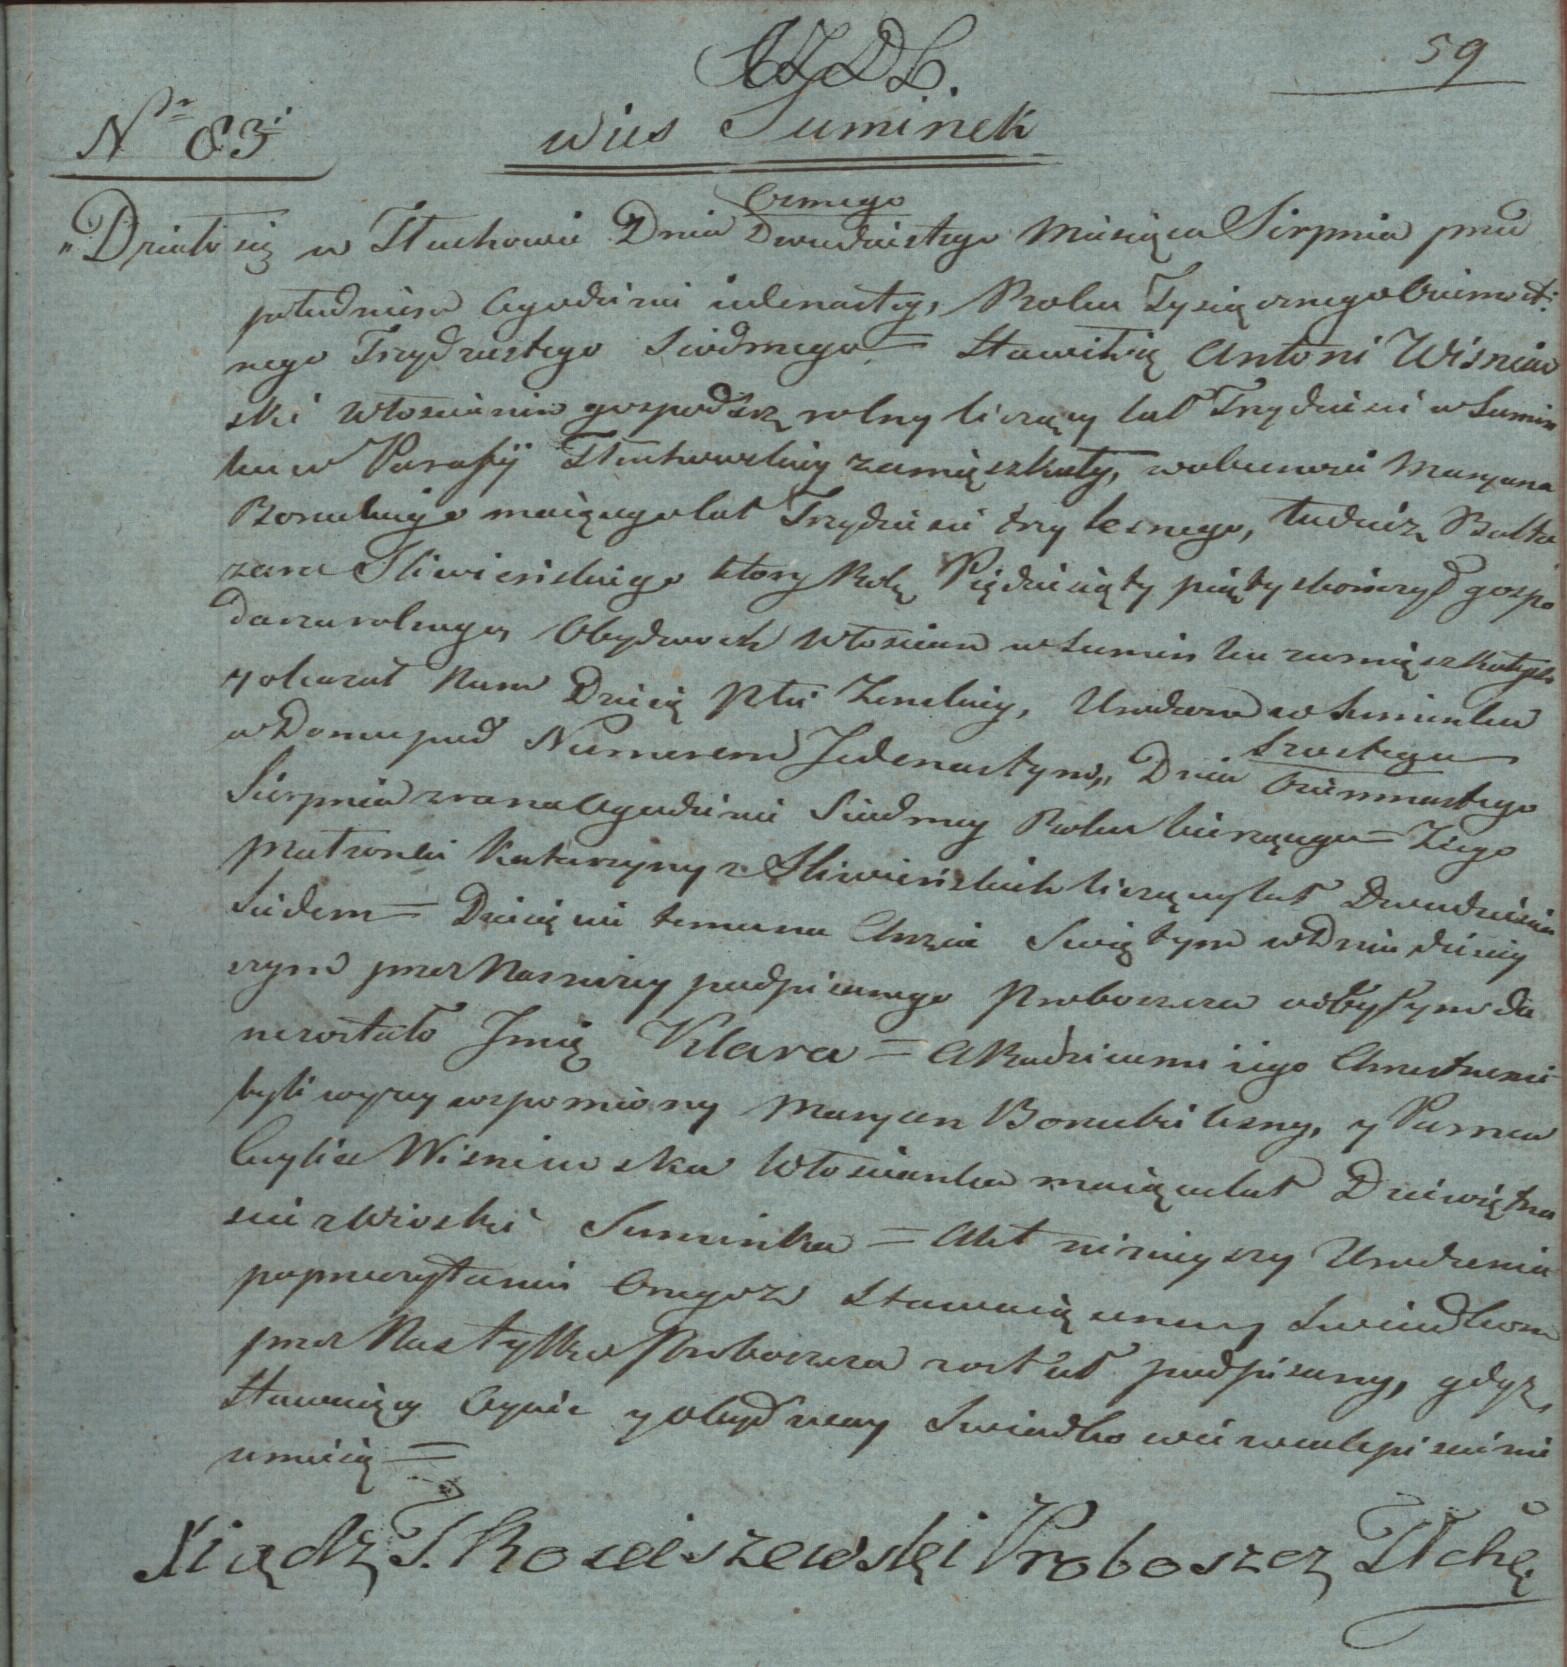 59
Nr 83
wies Suminek
Osmego
Działo się w Tłuchowie Dnia Dwudziestego Miesiąca Sierpnia przed
południem o godzinie iedenastey, Roku Tysiącznego Osmset
nego Trzydziestego Siodmego = Stawił się Antoni Wisniew
ski Włoscianin gospodarz rolny liczący lat Trzydziesci w Sumin
ku w Parafij Tłuchowskiey zamięszkały, w obecności Maryana
maiącego lat Trzydziesci trzy lesnego, tudzież Balta
zara Sliwieńskiego ktory Rok Pięćdziesiąty piąty skończył gospo
darza rolnego, Obydwoch Włoscian w Suminku zamięszkałych
y okazał Nam Dziecię Płci Zenskiey, Urodzone w Suminku
w Domu pod Numerem Jedenastym, Dnia Szostego Osiemnastego
Sierpnia zrana o godzinie Siodmey Roku bieżącego = z iego
Małżonki Katarzyny z Sliwieńskich liczącey lat Dwadziescia
Siedem = Dziecięciu temu na Chrzcie Swiętym w Dniu dzisiey
szym przez Nas niżey podpisanego Proboszcza odbytym da
ne zostało Imię Klara = a Rodzicami iego Chrzestnemi
byli wyżey wspomniony Maryan lesny, y Panna
Cecylia Wisniewska Włoscianka maiąca lat Dziewiętna
scie z Wioski Suminka = Akt ninieyszy Urodzenia
po przeczytaniu Onegoż Stawaiącemu y Swiadkom
przez Nas tylko Proboszcza został podpisany, gdyż
Stawaiący Oyciec y obydway Swiadkowie wcale pisać nie
umieią =
Xiądz T. Kowaszewski Proboszcz Tłchę